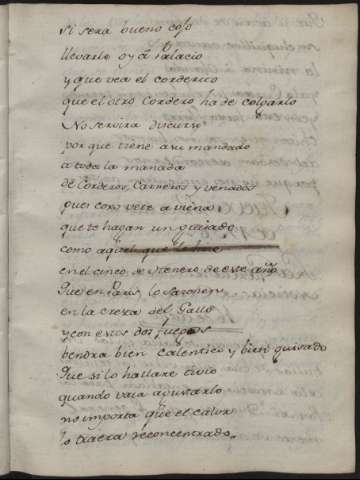 si sera bueno cojo
llevarlo oy a Palacio
y que vea el corderito
que el otro Cordero ha de colgarlo
No servira discurso
por que tiene a su mandado
a toda la manada
de Corderos, Carneros y venados
pues coxo vete a viena
que te hagan un guisado
como aquel que te hize
en el cinco de Henero de este año
Que en Paris lo sazonen
en la cresta del Gallo
y con estos dos fuegos
vendra bien calentico y bien guisado
Que si lo hallare tivio
quando vaia a gustarlo
no importa que el calor
lo traera reconcentrado.